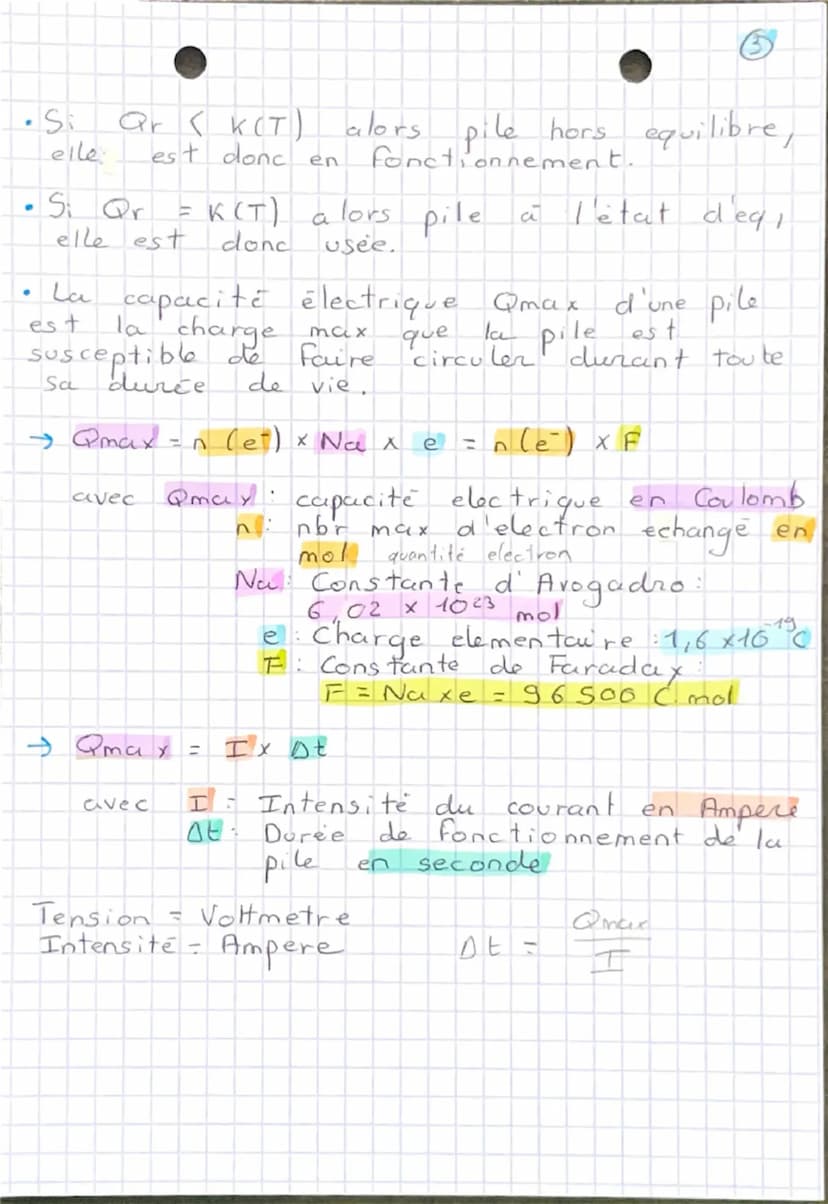 3
• Si Qr < K(T) alors pile hors equilibre,
elle est donc en fonctionnement.
• Si Qr = K(T) alors pile à l'état d'eq,
elle est donc usée.
• La capacité électrique Qmax d'une pile
est la charge max que la pile est
susceptible de faire circuler durant toute
sa durée de vie.
→ Qmax = n(e⁻) × Na × e = n(e⁻) × F
avec Qmax : capacité electrique en Coulomb
n : nbr max d'electron echangé en
mol quantité electron
Na : Constante d'Avogadro :
6,02 × 10²³ mol
e : Charge elementaire : 1,6 × 10⁻¹⁹ C
F : Constante de Faraday :
F = Na x e = 96 500 C.mol
→ Qmax = I x Δt
avec I : Intensité du courant en Ampere
Δt : Durée de fonctionnement de la
pile en seconde
Tension = Voltmetre
Intensité = Ampere
Δt = Qmax / I